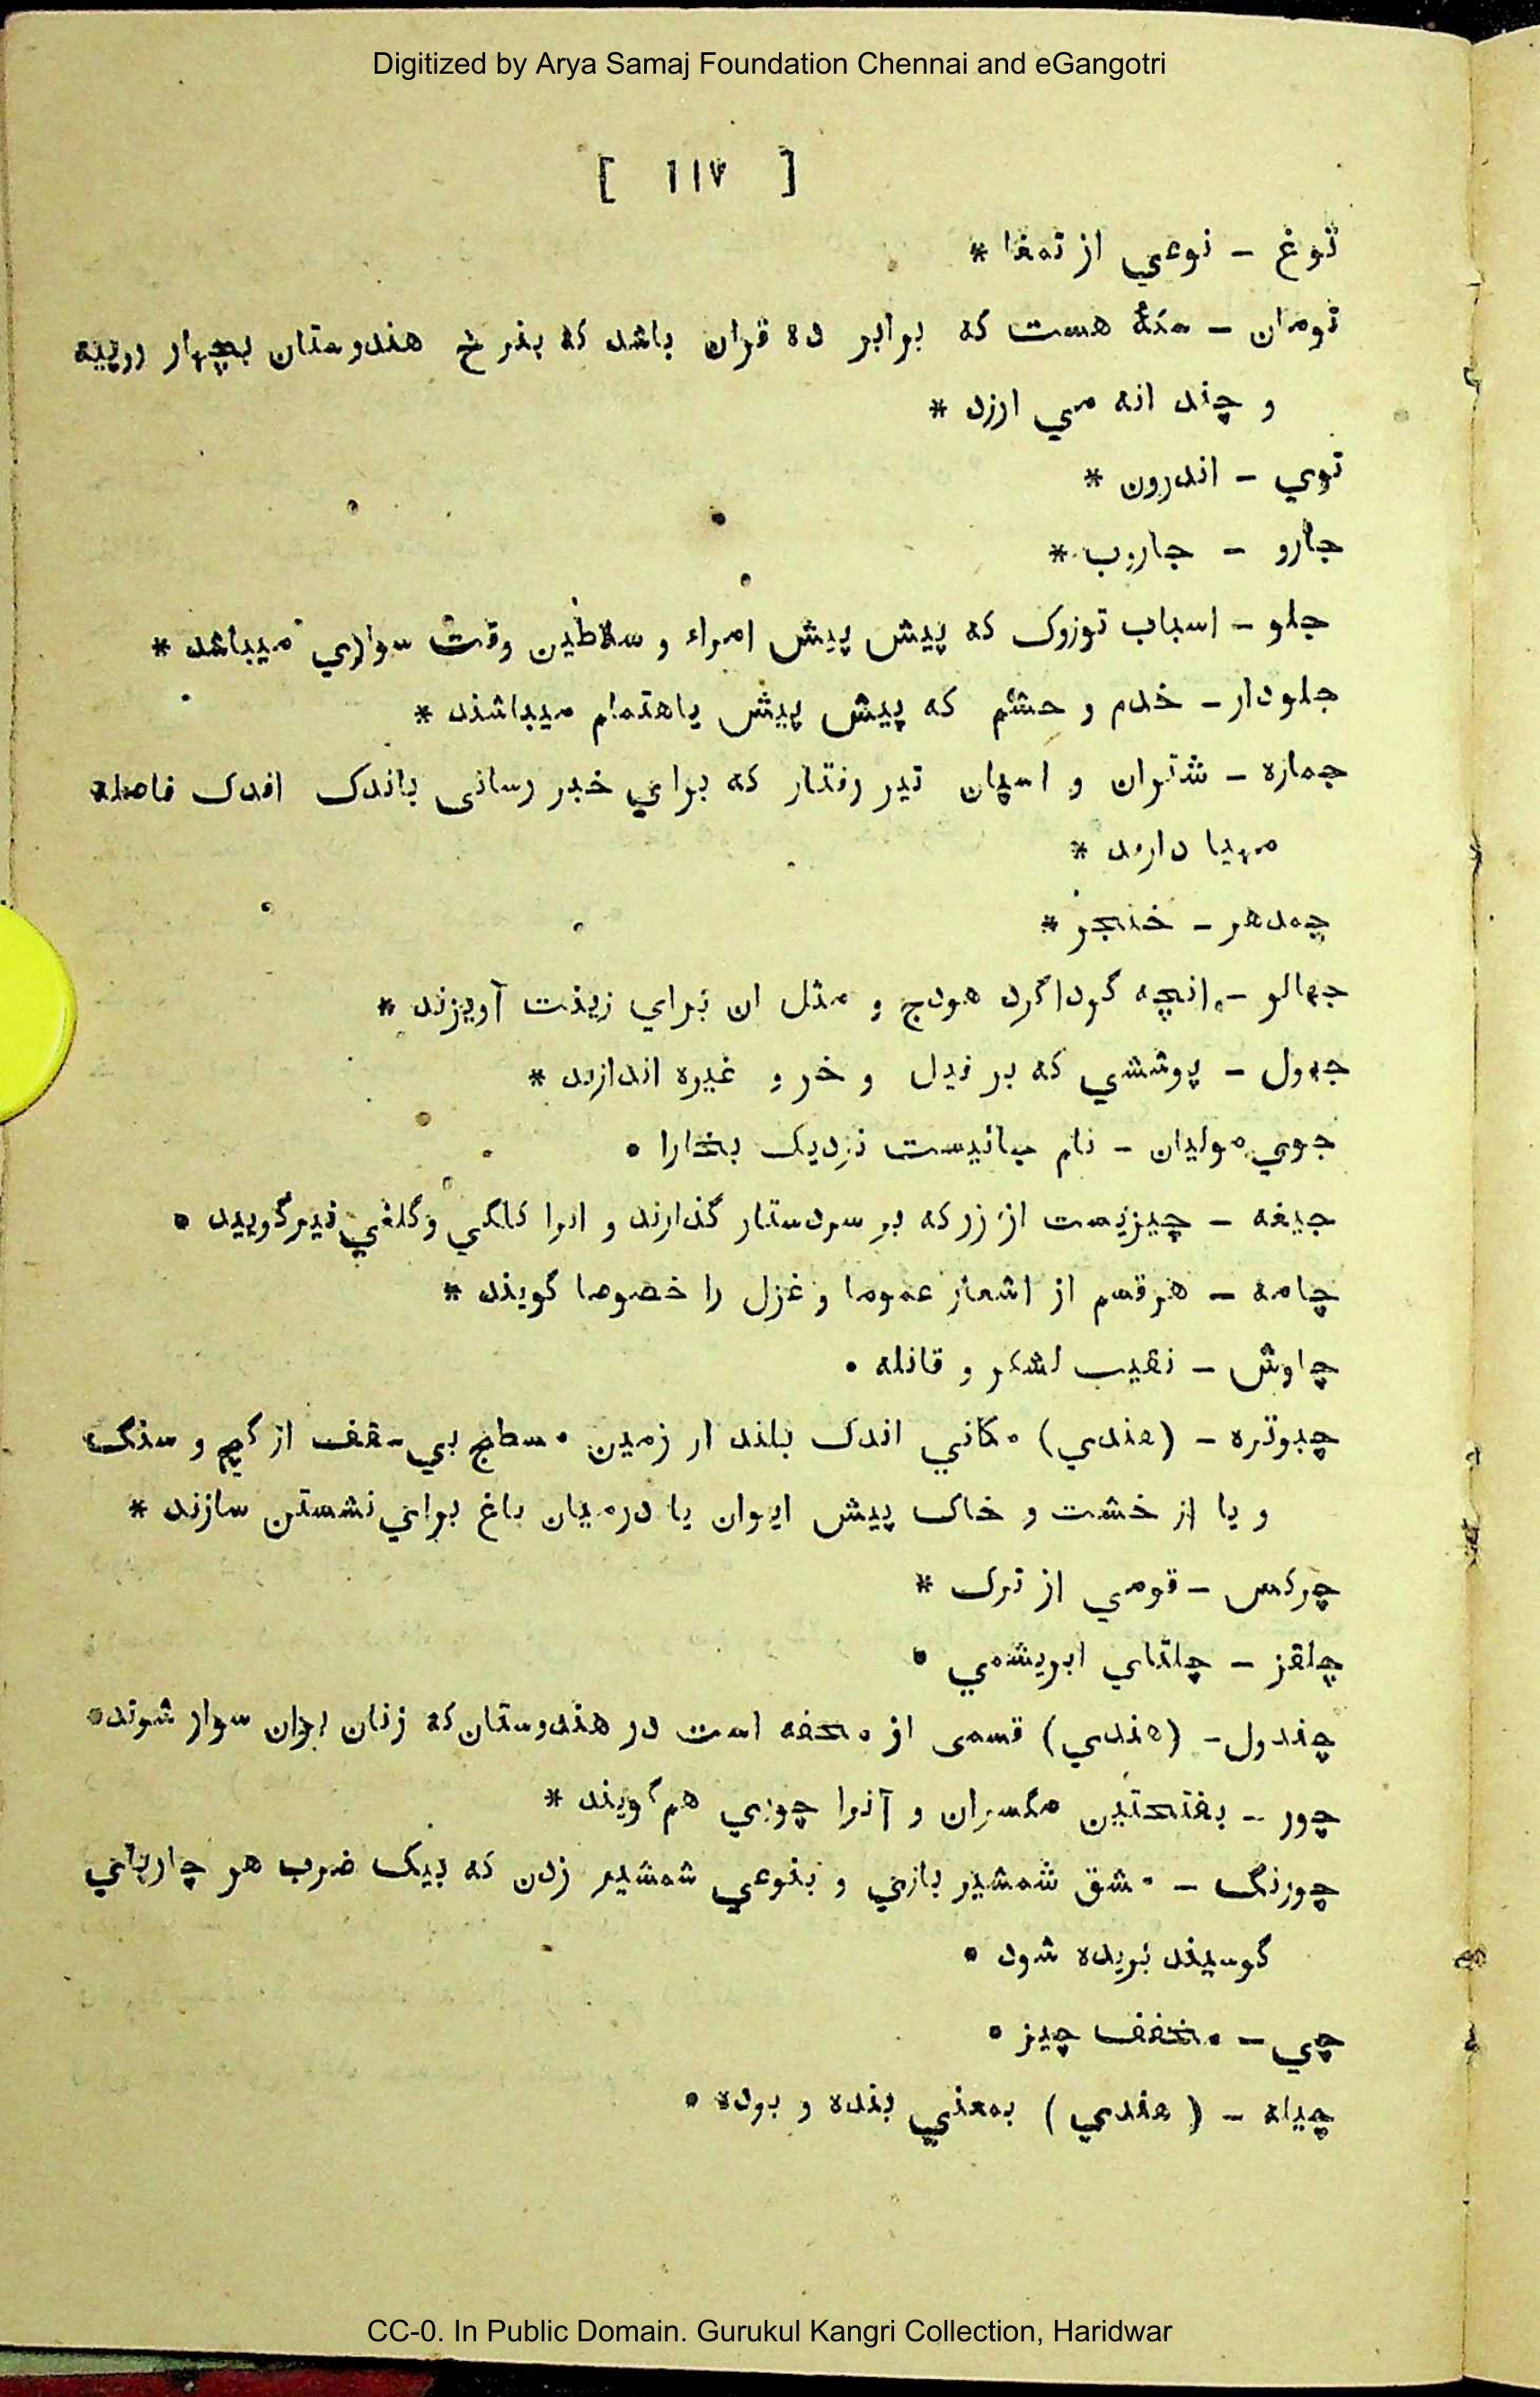 Digitized by Arya Samaj Foundation Chennai and eGangotri
[ ۱۱۷ ]
توغ - نوعي از تمغا *
تومان - سکهٔ هست که برابر ده قران باشد که بنرخ هندوستان بچهار روپیه
و چند انه مي ارزد *
توي - اندرون *
جارو - جاروب *
جلو - اسباب توزوک که پیش پیش امراء و سلاطین وقت سواري میباشد *
جلودار - خدم و حشم که پیش پیش باهتمام میباشند *
جمازه - شتران و اسپان تیز رفتار که براي خبر رسانی باندک اندک فاصله
مهیا دارند *
جمدهر - خنجر *
جهالر - انچه گرداگرد هودج و مثل ان براي زینت آویزند *
جهول - پوششي که بر فیل و خر و غیره اندازند *
جوي مولیان - نام جائیست نزدیک بخارا *
جیغه - چیزیست از زر که بر سر دستار گذارند و انرا کلگي و کلغي نیز گویند *
چامه - هر قسم از اشعار عموما و غزل را خصوصا گویند *
چاوش - نقیب لشکر و قافله *
چبوتره - (هندي) مکاني اندک بلند از زمین مسطح بي سقف از گچ و سنگ
و یا از خشت و خاک پیش ایوان یا درمیان باغ براي نشستن سازند *
چرکس - قومي از ترک *
چلقز - چلتاي ابریشمي *
چندول - (هندي) قسمی از محفه است در هندوستان که زنان بران سوار شوند *
چور - بفتحتین مگسران و آنرا چوري هم گویند *
چورنگ - مشق شمشیر بازي و بنوعي شمشیر زدن که بیک ضرب هر چارپاي
گوسپند بریده شود *
چي - مخفف چیز *
چیله - (هندي) بمعني بنده و بوده *
CC-0. In Public Domain. Gurukul Kangri Collection, Haridwar